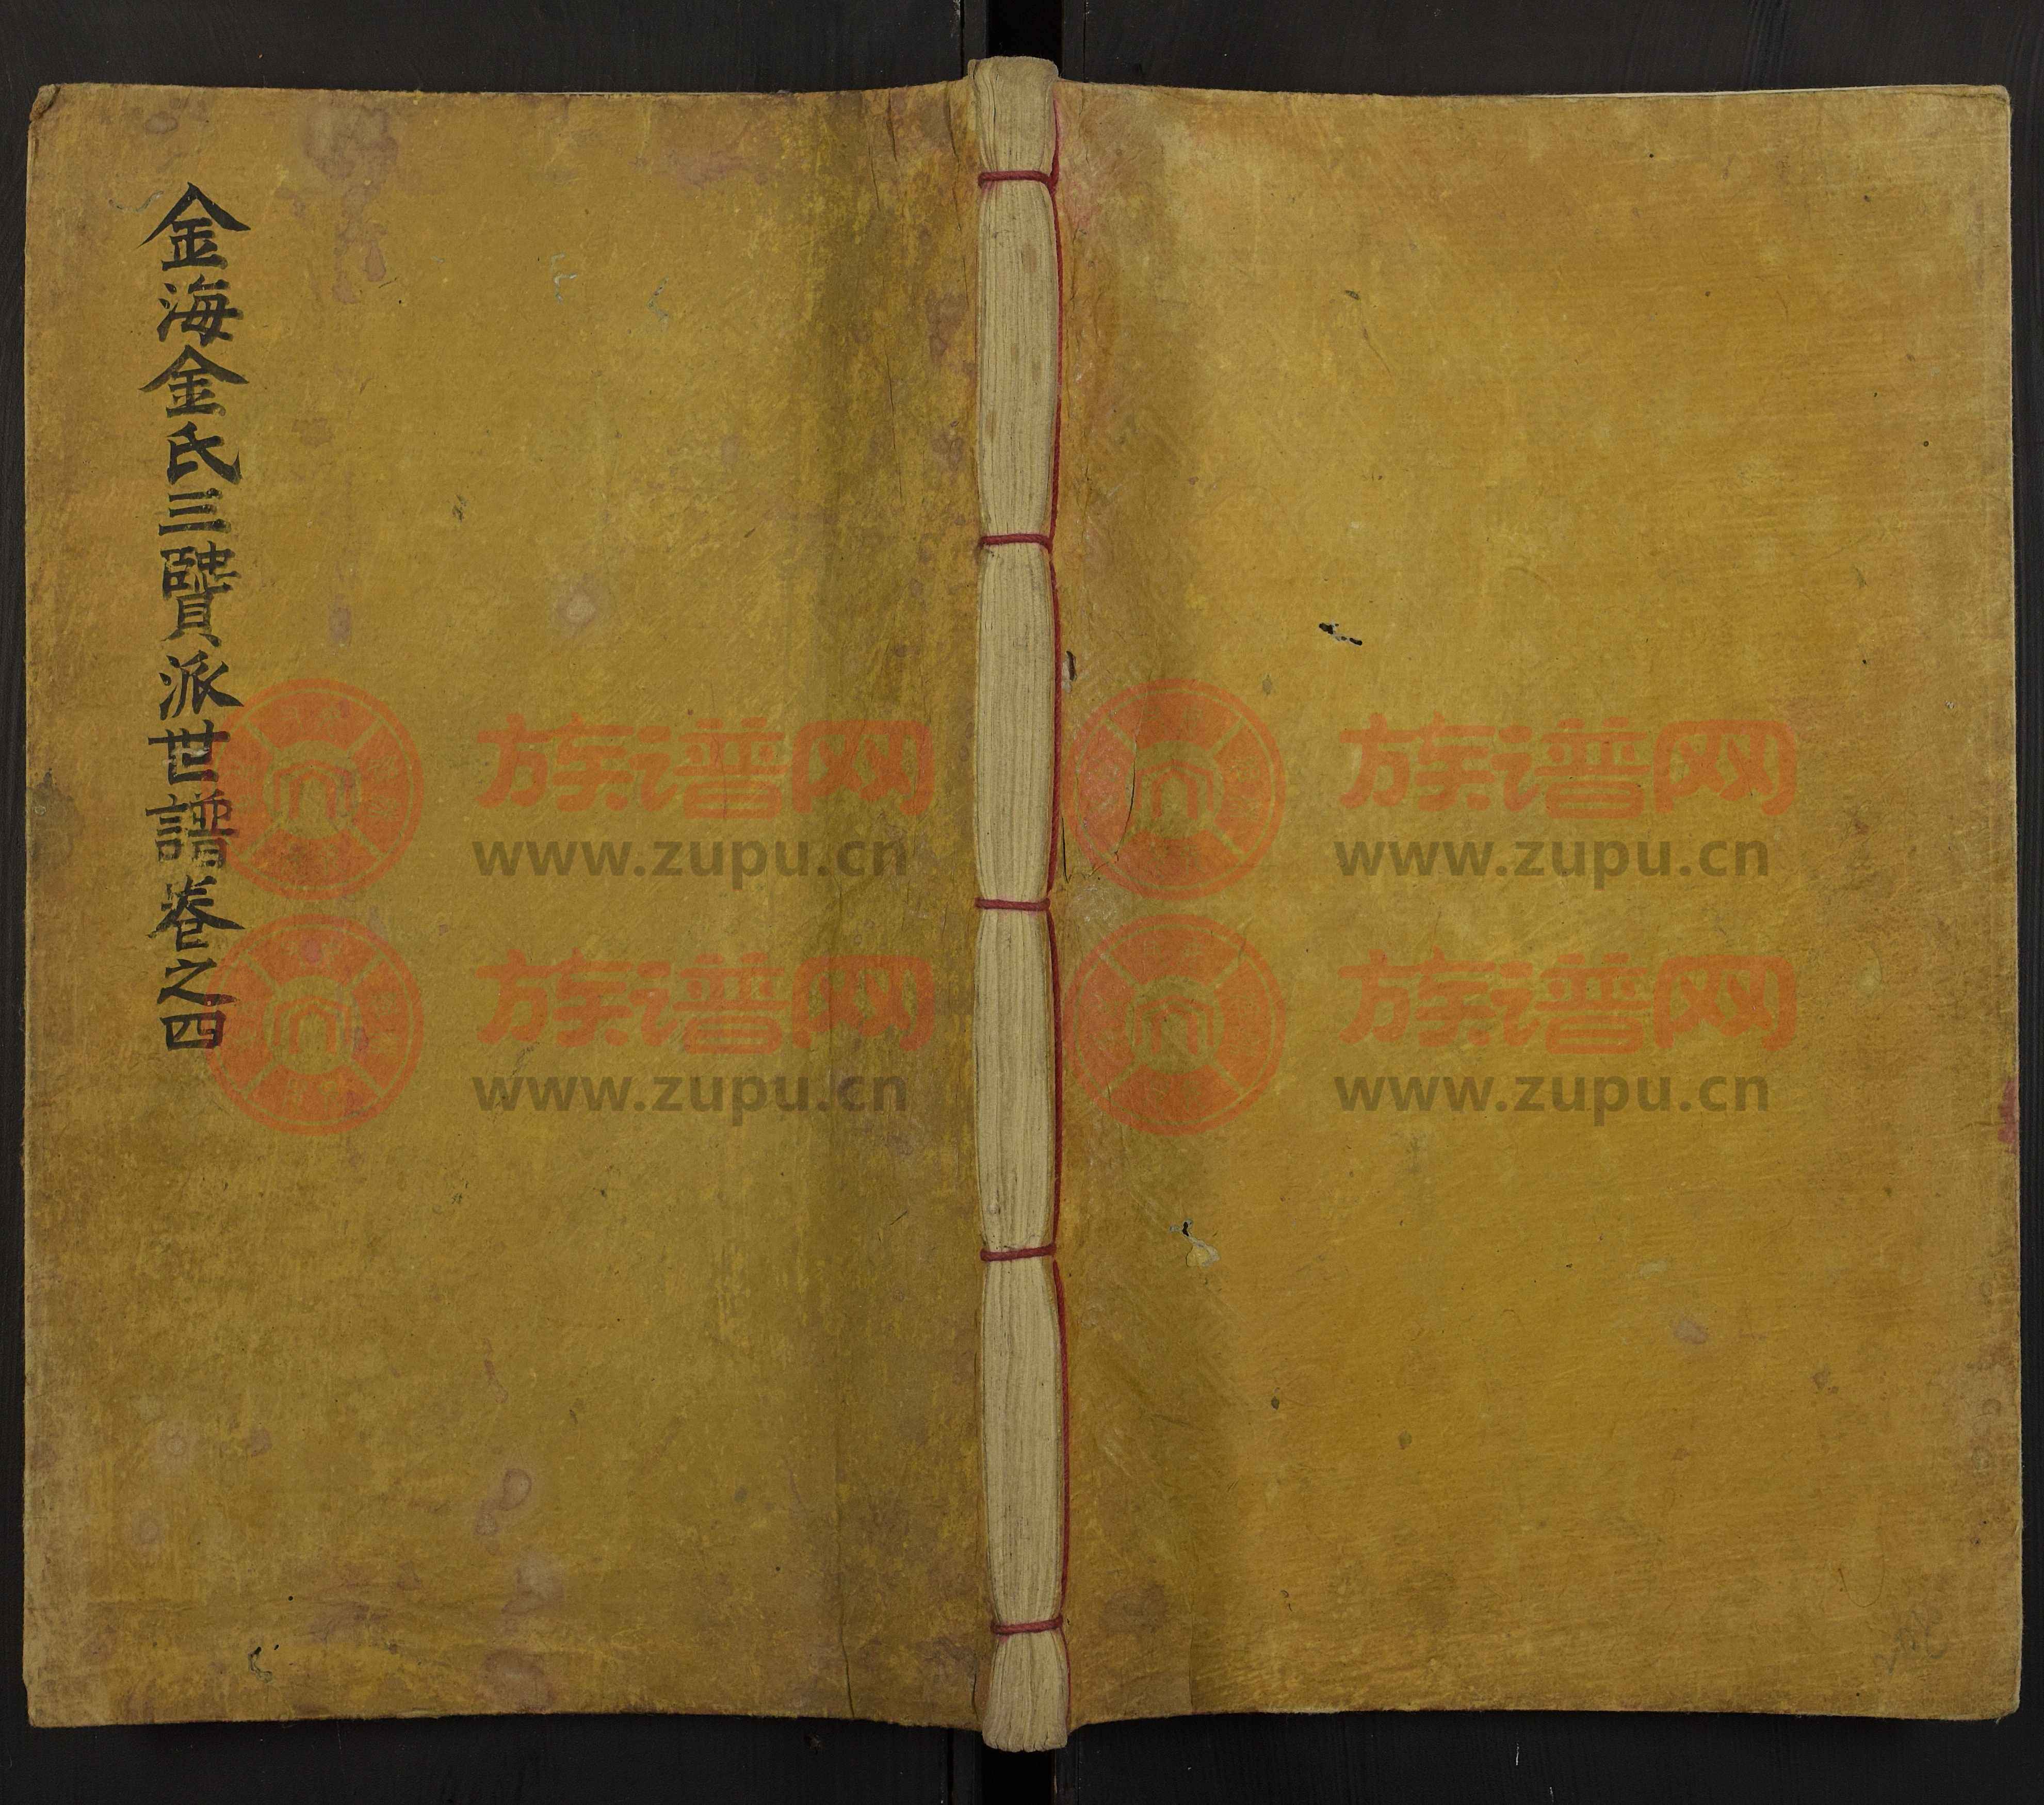 金海金氏三賢派世譜卷之四
族谱网
www.zupu.cn
族谱网
www.zupu.cn
族谱网
www.zupu.cn
族谱网
www.zupu.cn